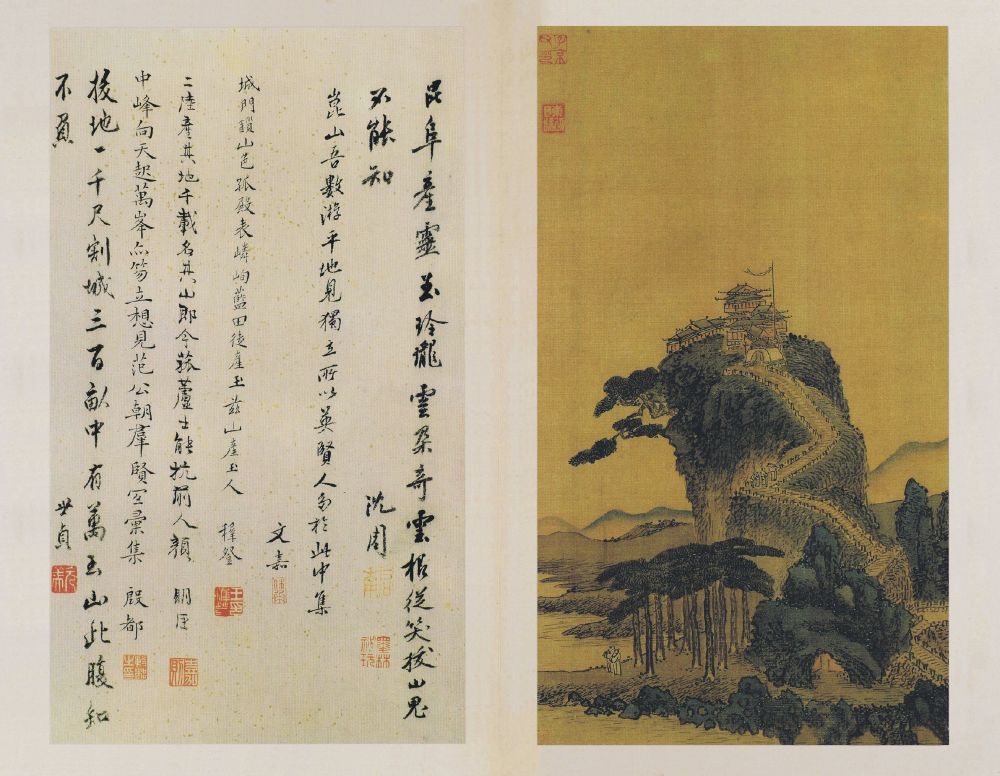 子京父印
昆阜產靈玉玲瓏雲朵奇雲根從笑拔山鬼
不能知 沈周
啓南
墨林祕玩
崑山吾數游平地見獨立所以英賢人多於此中集
文嘉
城門鎖山色孤殿表嶙峋藍田徒產玉茲山產玉人 穉登
二陸產其地千載名其山即今菰蘆士能抗前人顏 明臣
中峰向天起萬峯亦笏立想見范公朝羣賢空彙集 殷都
拔地一千尺割城三百畝中有萬玉山此腹知
不負 世貞
元美